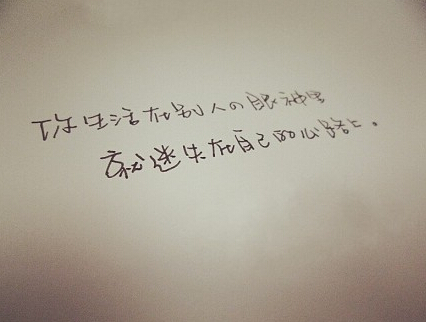 你生活在别人の眼神里
就迷失在自己的心路上.